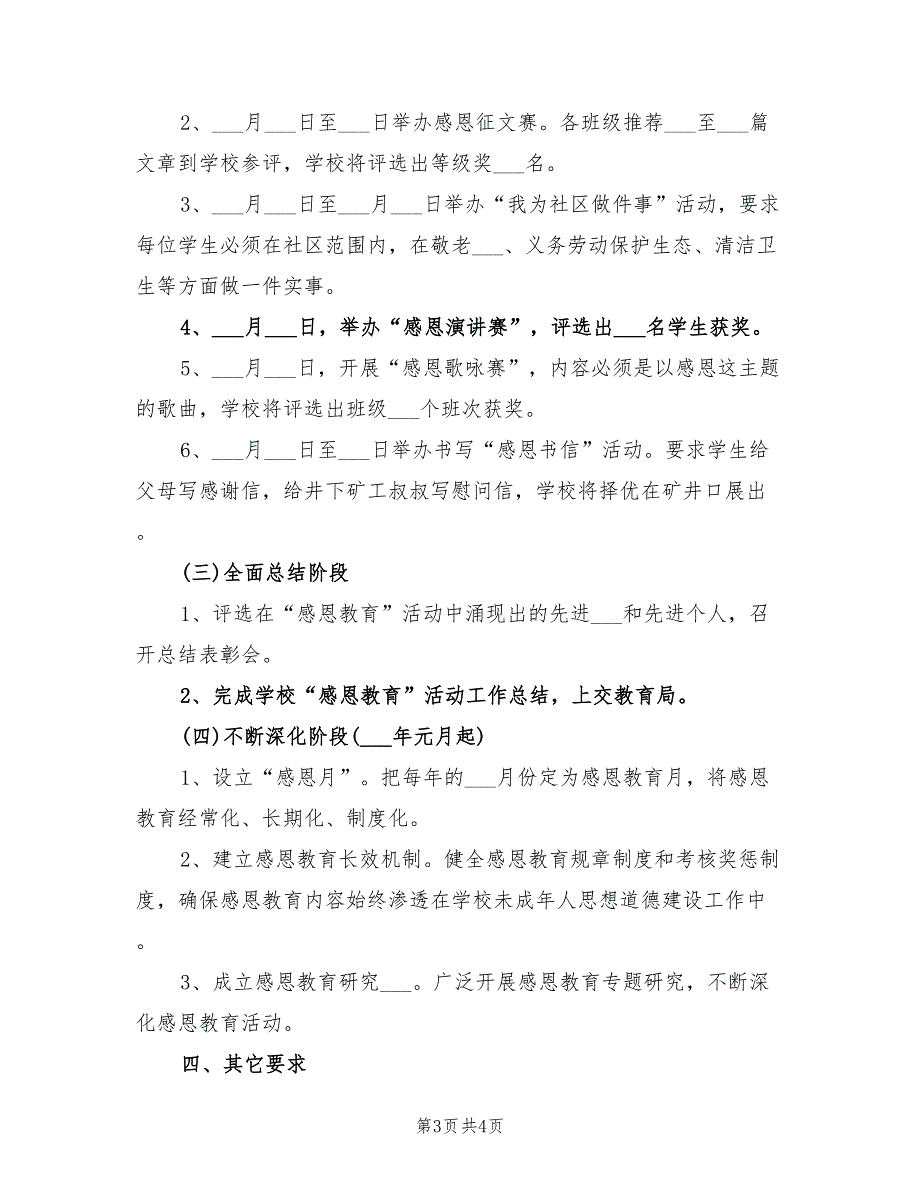 2、___月___日至___日举办感恩征文赛。各班级推荐___至___篇
文章到学校参评，学校将评选出等级奖___名。
3、___月___日至___月___日举办“我为社区做件事”活动，要求
每位学生必须在社区范围内，在敬老___、义务劳动保护生态、清洁卫
生等方面做一件实事。
4、___月___日，举办“感恩演讲赛”，评选出___名学生获奖。
5、___月___日，开展“感恩歌咏赛”，内容必须是以感恩这主题
的歌曲，学校将评选出班级___个班次获奖。
6、___月___日至___日举办书写“感恩书信”活动。要求学生给
父母写感谢信，给井下矿工叔叔写慰问信，学校将择优在矿井口展出
。
(三)全面总结阶段
1、评选在“感恩教育”活动中涌现出的先进___和先进个人，召
开总结表彰会。
2、完成学校“感恩教育”活动工作总结，上交教育局。
(四)不断深化阶段(___年元月起)
1、设立“感恩月”。把每年的___月份定为感恩教育月，将感恩
教育经常化、长期化、制度化。
2、建立感恩教育长效机制。健全感恩教育规章制度和考核奖惩制
度，确保感恩教育内容始终渗透在学校未成年人思想道德建设工作中
。
3、成立感恩教育研究___。广泛开展感恩教育专题研究，不断深
化感恩教育活动。
四、其它要求
第3页共4页